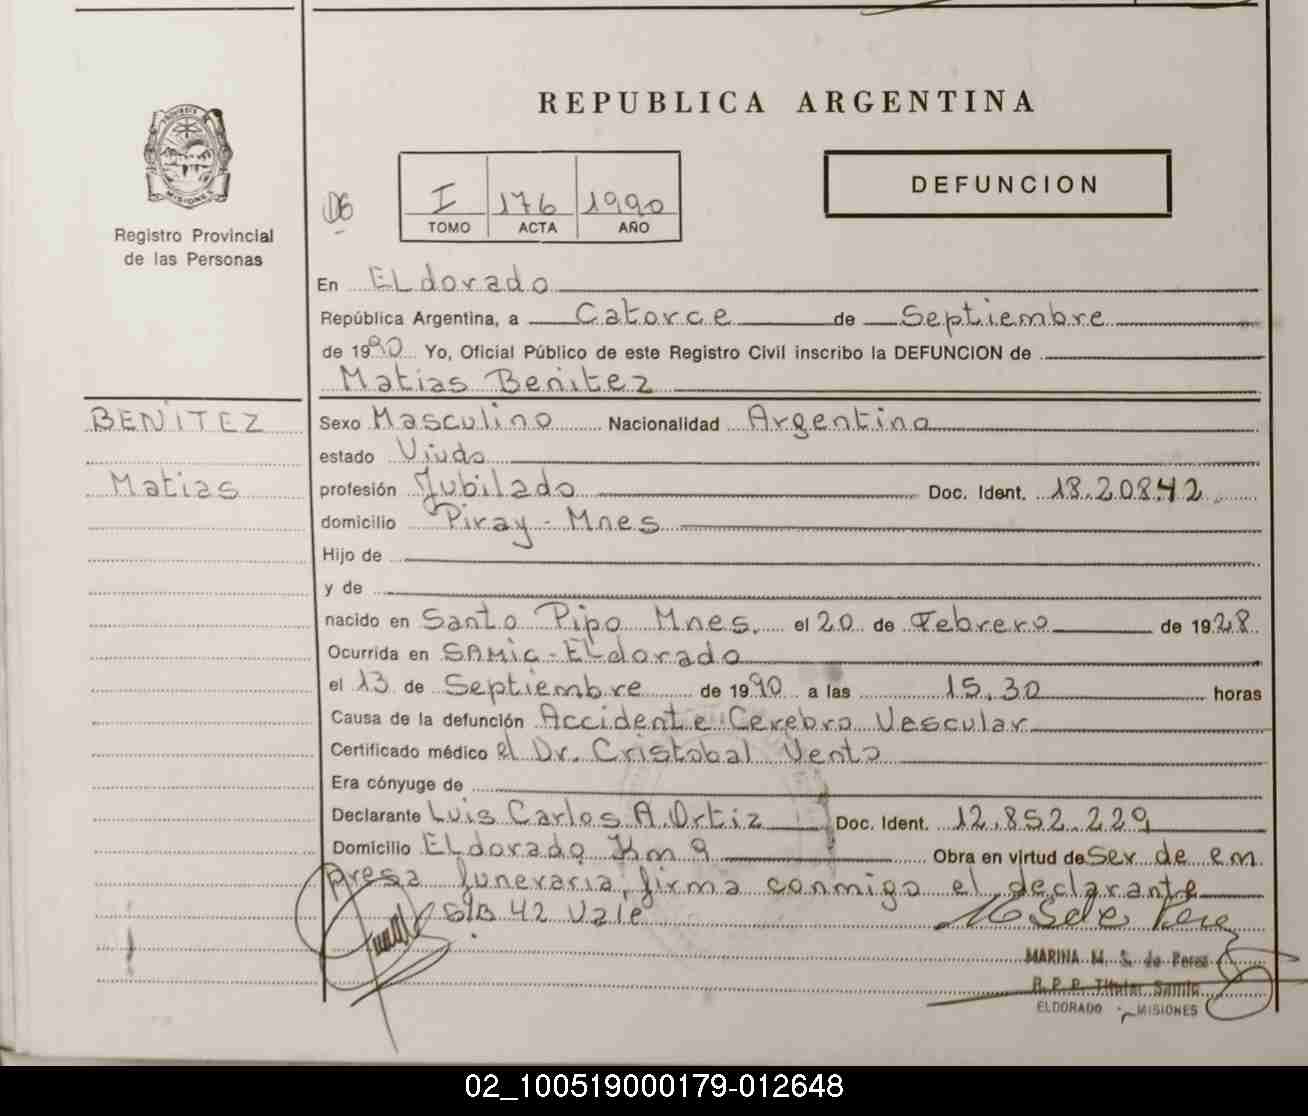 REPUBLICA ARGENTINA
DEFUNCION
I 176 1990
TOMO ACTA AÑO
PROVINCIA DE MISIONES
Registro Provincial
de las Personas
En ELdorado
República Argentina, a Catorce de Septiembre
de 1990 Yo, Oficial Público de este Registro Civil inscribo la DEFUNCION de
Matias Benitez
BENITEZ
Matias
Sexo Masculino Nacionalidad Argentina
estado Viudo
profesión Jubilado Doc. Ident. 18.20842
domicilio Piray - Mnes
Hijo de
y de
nacido en Santo Pipo Mnes. el 20 de Febrero de 1928
Ocurrida en SAMic - ELdorado
el 13 de Septiembre de 1990 a las 15.30 horas
Causa de la defunción Accidente Cerebro Vescular
Certificado médico el Dr. Cristobal Vento
Era cónyuge de
Declarante Luis Carlos A. Ortiz Doc. Ident. 12.852.229
Domicilio ELdorado Km 9 Obra en virtud de ser de em
presa funeraria, firma conmigo el declarante
S/B 42 Vale
MARINA M. S. de Perez
R. P. P. Titular Samic
ELDORADO - MISIONES
02_100519000179-012648